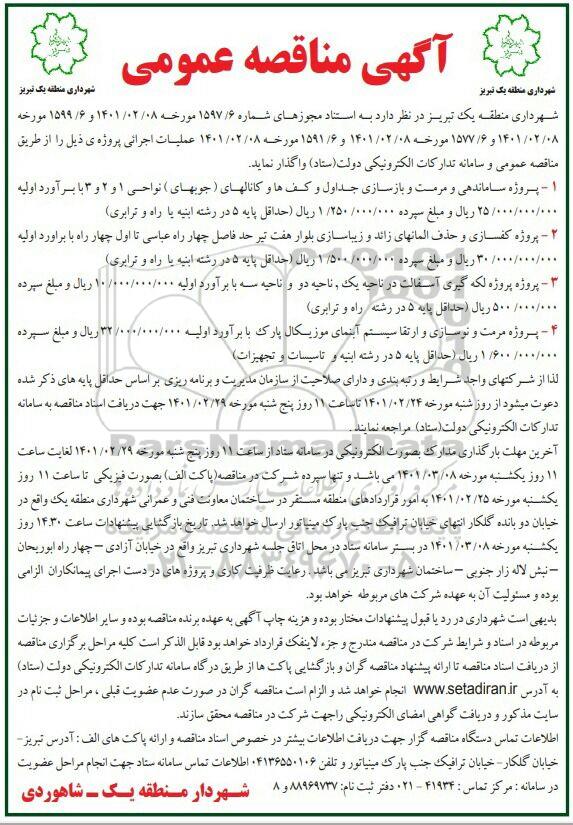 آگهی مناقصه عمومی
شهرداری منطقه یک تبریز
شهرداری منطقه یک تبریز
شهرداری منطقه یک تبریز در نظر دارد به استناد مجوزهای شماره ۱۵۹۷/۶ مورخه ۱۴۰۱/۰۲/۰۸ و ۱۵۹۹/۶ مورخه
۱۴۰۱/۰۲/۰۸ و ۱۵۷۷/۶ مورخه ۱۴۰۱/۰۲/۰۸ و ۱۵۹۱/۶ مورخه ۱۴۰۱/۰۲/۰۸ عملیات اجرائی پروژه ی ذیل را از طریق
مناقصه عمومی و سامانه تدارکات الکترونیکی دولت(ستاد) واگذار نماید.
۱ - پروژه ساماندهی و مرمت و بازسازی جداول و کف ها و کانالهای ( جوبهای ) نواحی ۱ و ۲ و ۳ با برآورد اولیه
۲۵/۰۰۰/۰۰۰/۰۰۰ ریال و مبلغ سپرده ۱/۲۵۰/۰۰۰/۰۰۰ ریال (حداقل پایه ۵ در رشته ابنیه یا راه و ترابری)
۲ - پروژه کفسازی و حذف المانهای زائد و زیباسازی بلوار هفت تیر حد فاصل چهار راه عباسی تا اول چهار راه با براورد اولیه
۳۰/۰۰۰/۰۰۰/۰۰۰ ریال و مبلغ سپرده ۱/۵۰۰/۰۰۰/۰۰۰ ریال (حداقل پایه ۵ در رشته ابنیه یا راه و ترابری)
۳ - پروژه پروژه لکه گیری آسفالت در ناحیه یک ، ناحیه دو و ناحیه سه با برآورد اولیه ۱۰/۰۰۰/۰۰۰/۰۰۰ ریال و مبلغ سپرده
۵۰۰/۰۰۰/۰۰۰ ریال (حداقل پایه ۵ در رشته راه و ترابری)
۴ - پروژه مرمت و نوسازی و ارتقا سیستم آبنمای موزیکال پارک با برآورد اولیه ۳۲/۰۰۰/۰۰۰/۰۰۰ ریال و مبلغ سپرده
۱/۶۰۰/۰۰۰/۰۰۰ ریال (حداقل پایه ۵ در رشته ابنیه و تاسیسات و تجهیزات)
لذا از شرکتهای واجد شرایط و رتبه بندی و دارای صلاحیت از سازمان مدیریت و برنامه ریزی بر اساس حداقل پایه های ذکر شده
دعوت میشود از روز شنبه مورخه ۱۴۰۱/۰۲/۲۴ تا ساعت ۱۱ روز پنج شنبه مورخه ۱۴۰۱/۰۲/۲۹ جهت دریافت اسناد مناقصه به سامانه
تدارکات الکترونیکی دولت(ستاد) مراجعه نمایند .
آخرین مهلت بارگذاری مدارک بصورت الکترونیکی در سامانه ستاد از ساعت ۱۱ روز پنج شنبه مورخه ۱۴۰۱/۰۲/۲۹ لغایت ساعت
۱۱ روز یکشنبه مورخه ۱۴۰۱/۰۳/۰۸ می باشد و تنها سپرده شرکت در مناقصه(پاکت الف) بصورت فیزیکی تا ساعت ۱۱ روز
یکشنبه مورخه ۱۴۰۱/۰۲/۲۵ به امور قراردادهای منطقه مستقر در ساختمان معاونت فنی و عمرانی شهرداری منطقه یک واقع در
خیابان دو بانده گلکار انتهای خیابان ترافیک جنب پارک مینیاتور ارسال خواهد شد. تاریخ بازگشایی پیشنهادات ساعت ۱۴.۳۰ روز
یکشنبه مورخه ۱۴۰۱/۰۳/۰۸ در بستر سامانه ستاد در محل اتاق جلسه شهرداری تبریز واقع در خیابان آزادی – چهار راه ابوریحان
– نبش لاله زار جنوبی – ساختمان شهرداری تبریز می باشد . رعایت ظرفیت کاری و پروژه های در دست اجرای پیمانکاران الزامی
بوده و مسئولیت آن به عهده شرکت های مربوطه خواهد بود.
بدیهی است شهرداری در رد یا قبول پیشنهادات مختار بوده و هزینه چاپ آگهی به عهده برنده مناقصه بوده و سایر اطلاعات و جزئیات
مربوطه در اسناد و شرایط شرکت در مناقصه مندرج و جزء لاینفک قرارداد خواهد بود قابل الذکر است کلیه مراحل برگزاری مناقصه
از دریافت اسناد مناقصه تا ارائه پیشنهاد مناقصه گران و بازگشایی پاکت ها از طریق درگاه سامانه تدارکات الکترونیکی دولت (ستاد)
به آدرس www.setadiran.ir انجام خواهد شد و الزام است مناقصه گران در صورت عدم عضویت قبلی ، مراحل ثبت نام در
سایت مذکور و دریافت گواهی امضای الکترونیکی را جهت شرکت در مناقصه محقق سازند.
اطلاعات تماس دستگاه مناقصه گزار جهت دریافت اطلاعات بیشتر در خصوص اسناد مناقصه و ارائه پاکت های الف : آدرس تبریز–
خیابان گلکار– خیابان ترافیک جنب پارک مینیاتور و تلفن ۰۴۱۳۶۵۵۰۱۰۶ اطلاعات تماس سامانه ستاد جهت انجام مراحل عضویت
در سامانه : مرکز تماس : ۴۱۹۳۴ - ۰۲۱ دفتر ثبت نام: ۸۸۹۶۹۷۳۷ و ۸
شهردار منطقه یک – شاهوردی
ParsNamadData
۰۲۱-۸۸۳۴۹۶۷۰-۵